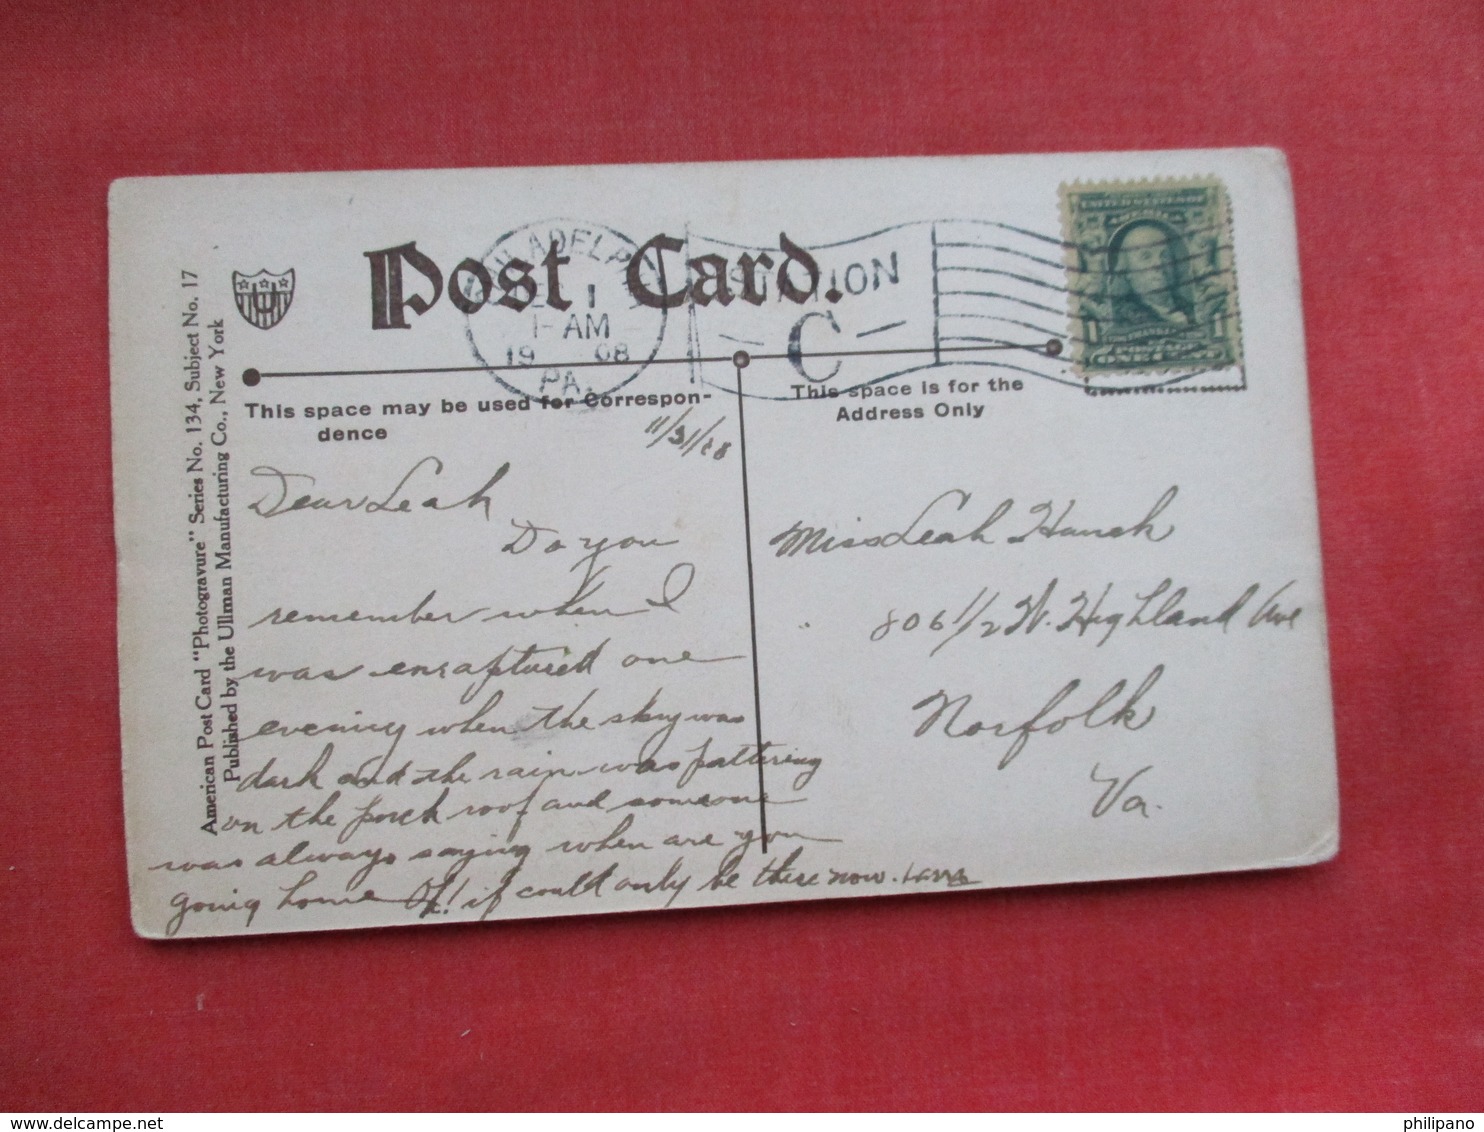 Post Card.
PHILADELPHIA
1
1-AM
19 08
PA.
STATION
C
UNITED STATES OF
AMERICA
1 1
ONE CENT
This space may be used for Correspon-
dence
This space is for the
Address Only
American Post Card "Photogravure" Series No. 134, Subject No. 17
Published by the Ullman Manufacturing Co., New York
11/31/08
Dear Leah
Do you
remember when I
was enraptured one
evening when the sky was
dark and the rain was pattering
on the porch roof and someone
was always saying when are you
going home Oh! if could only be there now.
Miss Leah Hauch
806 1/2 W. Highland Ave
Norfolk
Va.
www.delcampe.net
philipano